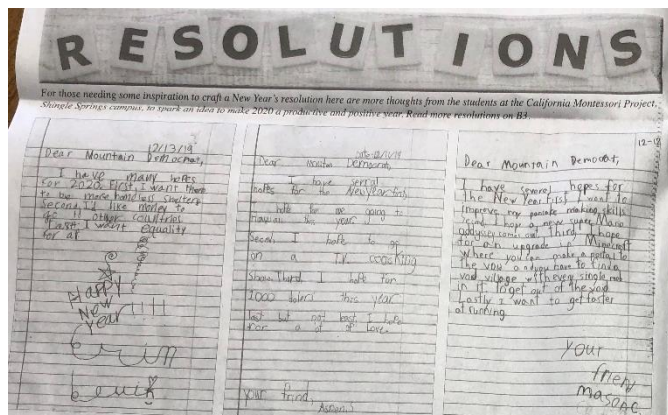 RESOLUTIONS
For those needing some inspiration to craft a New Year's resolution here are more thoughts from the students at the California Montessori Project,
Shingle Springs campus, to spark an idea to make 2020 a productive and positive year. Read more resolutions on B3.
12/13/19
Dear Mountain Democrat,
I have many hopes
for 2020. First, I want there
to be more homeless shelters
Second, I'd like money to
go to other countries
Last I want equality
for all
Happy
New
Year!!!!
Erin
Dear Democrat,
I have
hopes for the New year first
I hope going to
this year
Second I hope to go
on a T.V. coocking
Show. Third I hope for
1000 dolers this year
last but not least I hope
for a lot of Love.
your frind,
12-1
Dear Mountain Democrat,
I have several hopes for
The New Year First I want to
Improve my pancake making skills
I hope a new super Mario
odyssey comes out Third I hope
for an upgrade in Minecraft
Where you can make a portal to
the void and you have to find a
void village with every single
in it. To get out of the void
Lastly I want to get faster
at running.
your
friend
mason c.